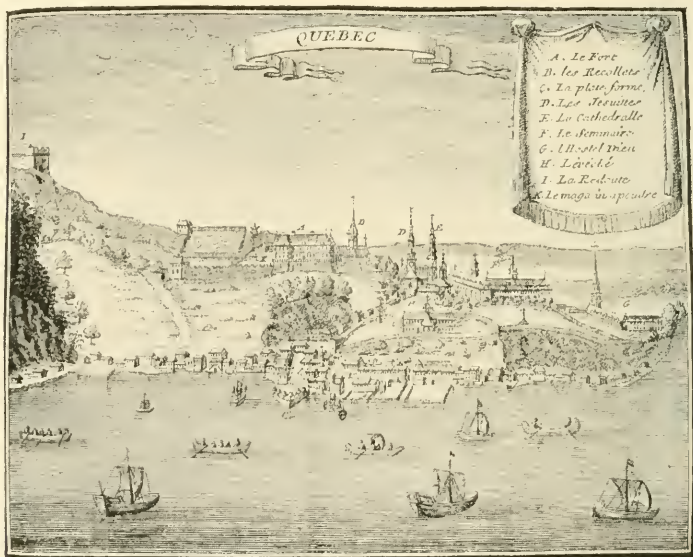 QUEBEC
A. Le Fort
B. les Recollets
C. La plate forme.
D. Les Jesuites
E. La Cathedralle
F. Le Seminaire
G. l'Hostel Dieu
H. Lévêché
I. La Redoute
K. Le magazin a poudre
I
A
B
D
E
G